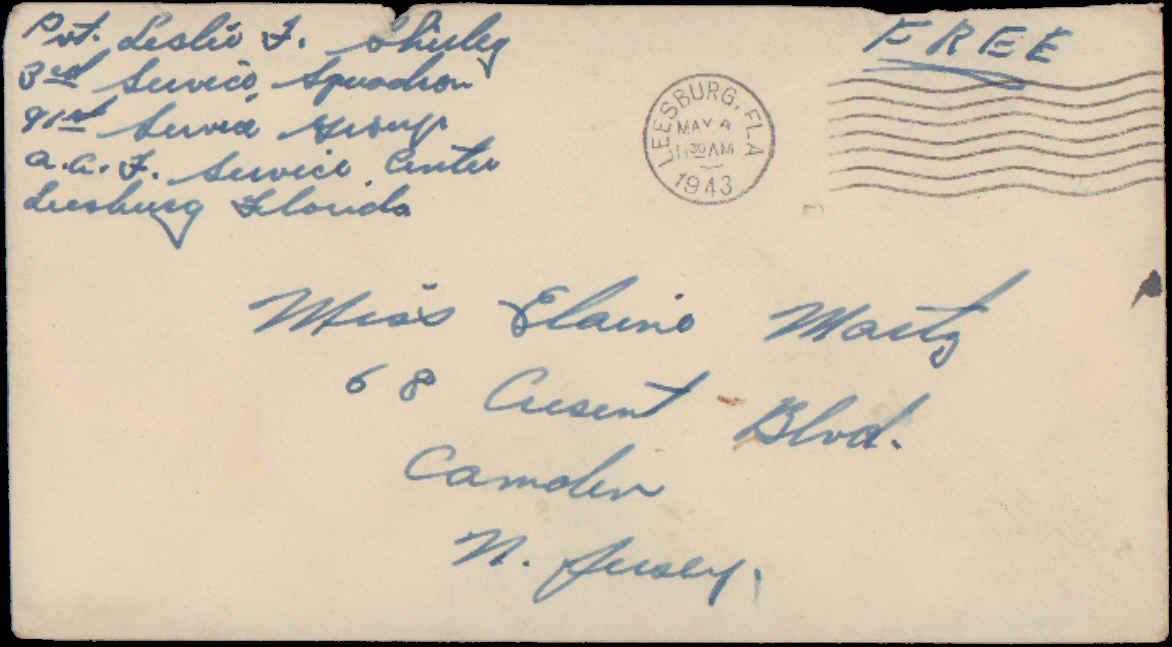 Pvt. Leslie F. Shirley
3rd Service Squadron
91st Service Group
A.A.F. Service Center
Leesburg Florida
FREE
LEESBURG, FLA
MAY 4
11 30 AM
1943
Miss Elaine
68 Cresent Blvd.
Camden
N. Jersey.